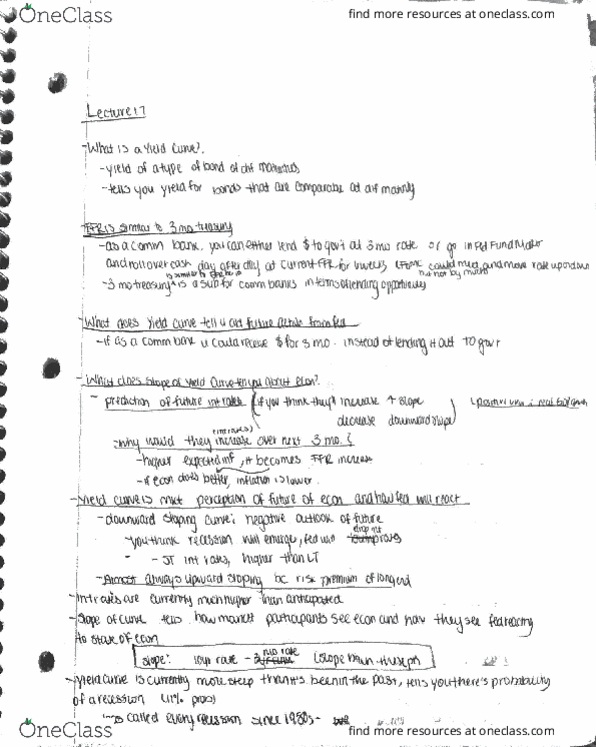 OneClass
find more resources at oneclass.com
Lecture 17
-What is a Yield Curve?
-yield of a type of bond at dif maturities
-tells you yield for bonds that are comparable at dif maturity
FFR is similar to 3 mo treasury
-as a comm bank, you can either lend $ to gov't at 3 mo rate or go in Fed Fund Market
and roll over cash day after day at current FFR for weeks (FOMC could meet and move rate up or down
but not by much)
-3 mo treasury is a sub for comm banks in terms of lending opportunities
-What does yield curve tell u abt future action from fed
-if as a comm bank u could receive $ for 3 mo. instead of lending it out to gov't
-What does slope of yield curve tell you about econ?
-prediction of future int rates (if you think they'll increase ↑ slope
decrease downward slope)
-why would they increase over next 3 mo.?
(int rates)
-higher expected inf, it becomes FFR increase
-if econ does better, inflation is lower
-Yield curve is mkt perception of future of econ and how fed will react
-downward sloping curve: negative outlook of future
-you think recession will emerge, fed will drop int rates
- ST int rates, higher than LT
-Almost always upward sloping bc risk premium of long end
-Int rates are currently much higher than anticipated
-Slope of curve tells how market participants see econ and how they see fed reacting
to state of econ
slope: 10yr rate - 3 mo rate
-yield curve is currently more steep than it's been in the past, tells you there's probability
of a recession (11% prob)
called every recession since 1980s-
OneClass
find more resources at oneclass.com